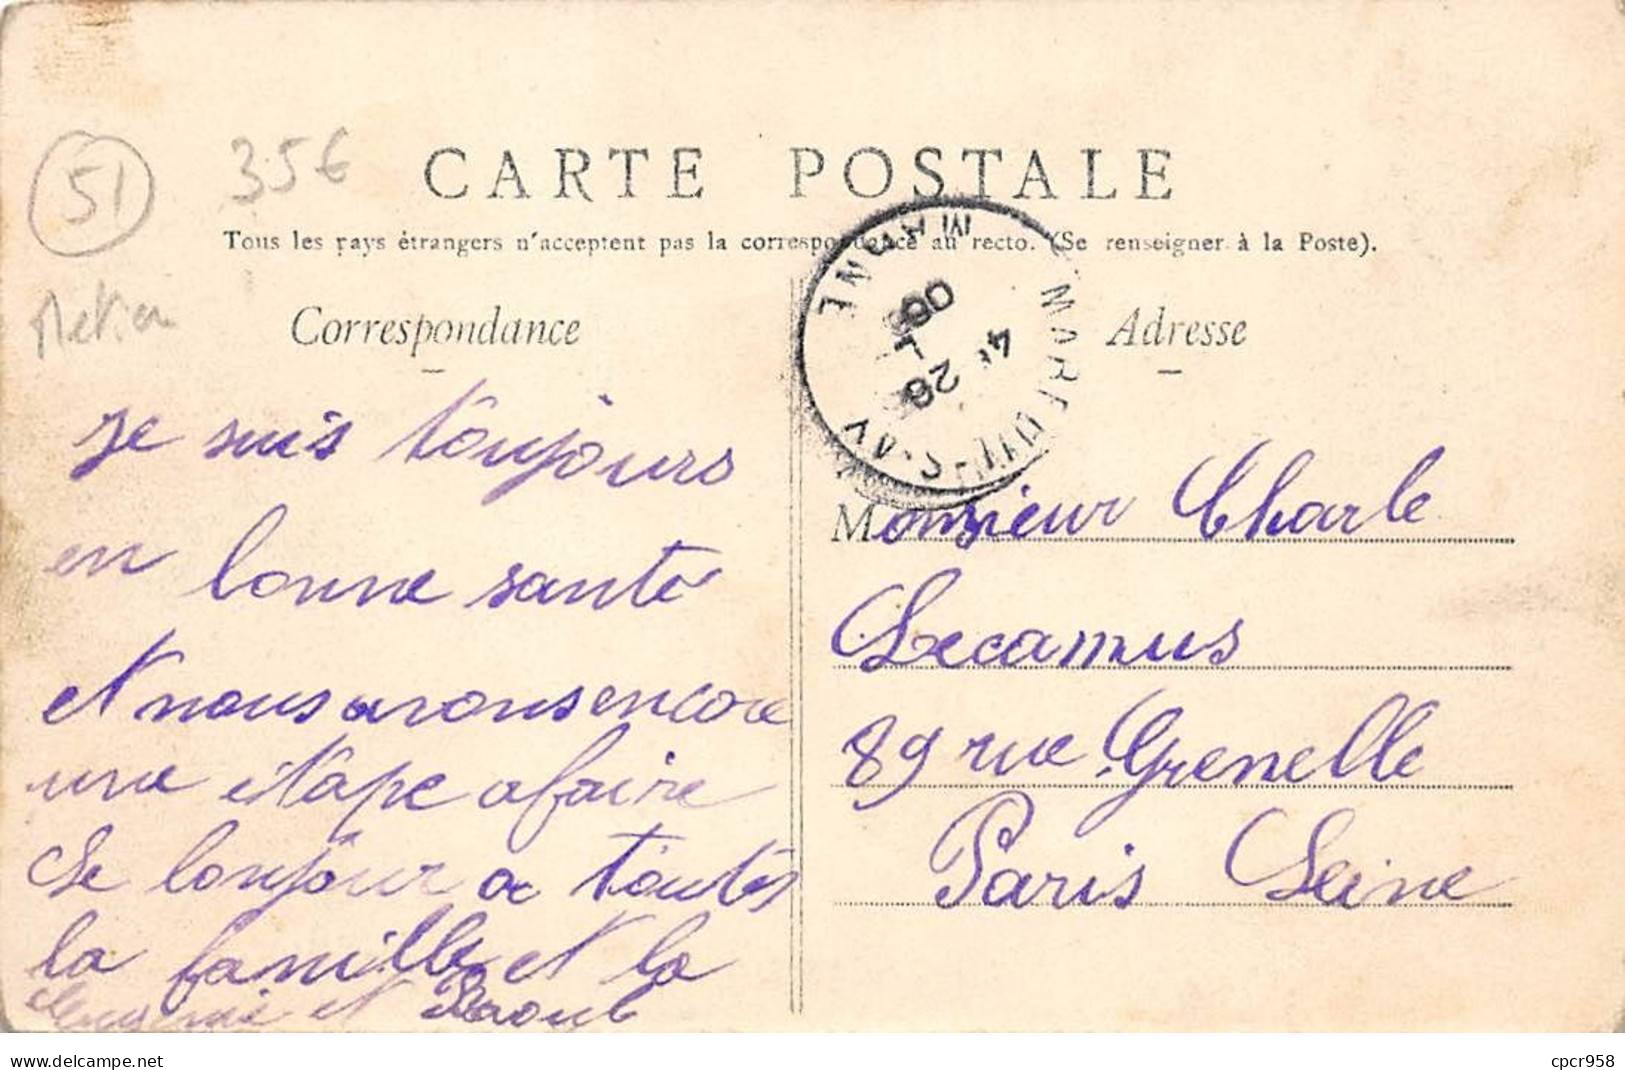 51
35€
CARTE POSTALE
Tous les pays étrangers n'acceptent pas la correspondance au recto. (Se renseigner à la Poste).
Correspondance
Adresse
MAREUIL-S-AY
MARNE
4
28
06
Je suis toujours
en bonne santé
et nous avons encore
une étape a faire
Le bonjour a toutes
la famille et la
et Raoul
Monsieur Charle
Lecamus
89 rue Grenelle
Paris Seine
delcampe.net
cpcr958